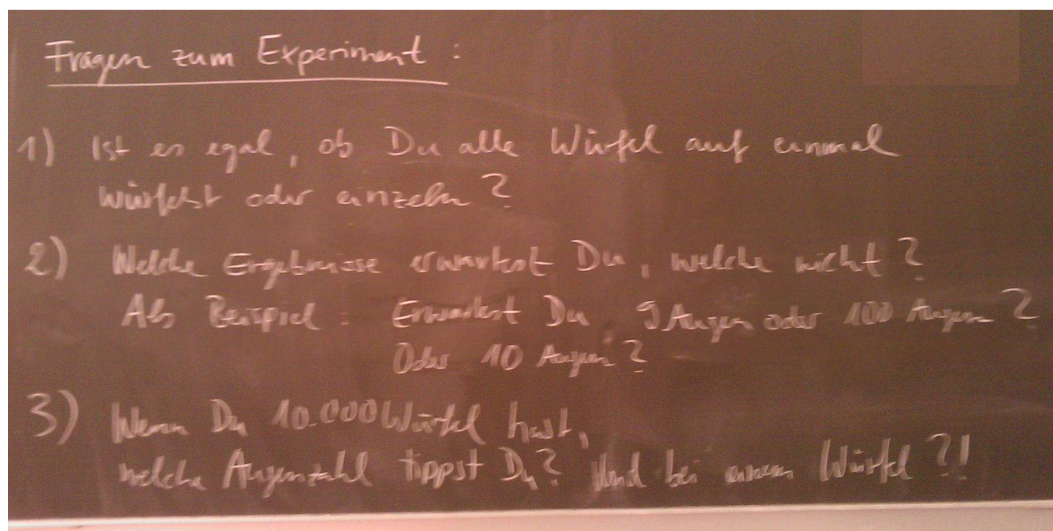 Fragen zum Experiment :
1) Ist es egal, ob Du alle Würfel auf einmal
würfelst oder einzeln ?
2) Welche Ergebnisse erwartest Du, welche nicht ?
Als Beispiel : Erwartest Du 9 Augen oder 100 Augen ?
Oder 10 Augen ?
3) Wenn Du 10.000 Würfel hast,
welche Augenzahl tippst Du ? Und bei einem Würfel ?!